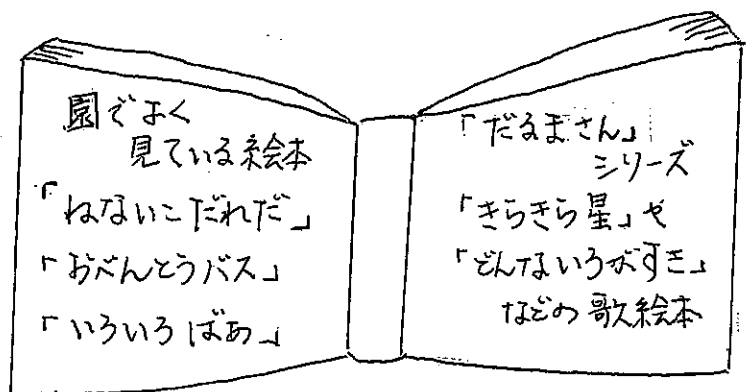 園でよく
見ている絵本
「ねないこだれだ」
「おべんとうバス」
「いろいろばあ」
「だるまさん」
シリーズ
「きらきら星」や
「どんないろがすき」
などの歌絵本